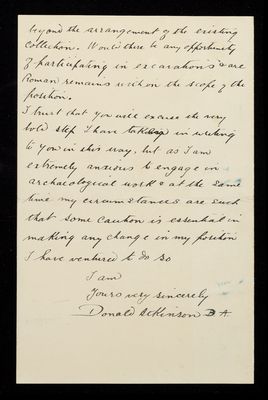 beyond the arrangement of the existing
collection. Would there be any opportunity
of participating in excavations & are
Roman remains within the scope of the
position.
I trust that you will excuse the very
bold step I have taken in writing
to you in this way, but as I am
extremely anxious to engage in
archaeological work & at the same
time my circumstances are such
that some caution is essential in
making any change in my position
I have ventured to do so
I am
Yours very sincerely
Donald Atkinson B A.